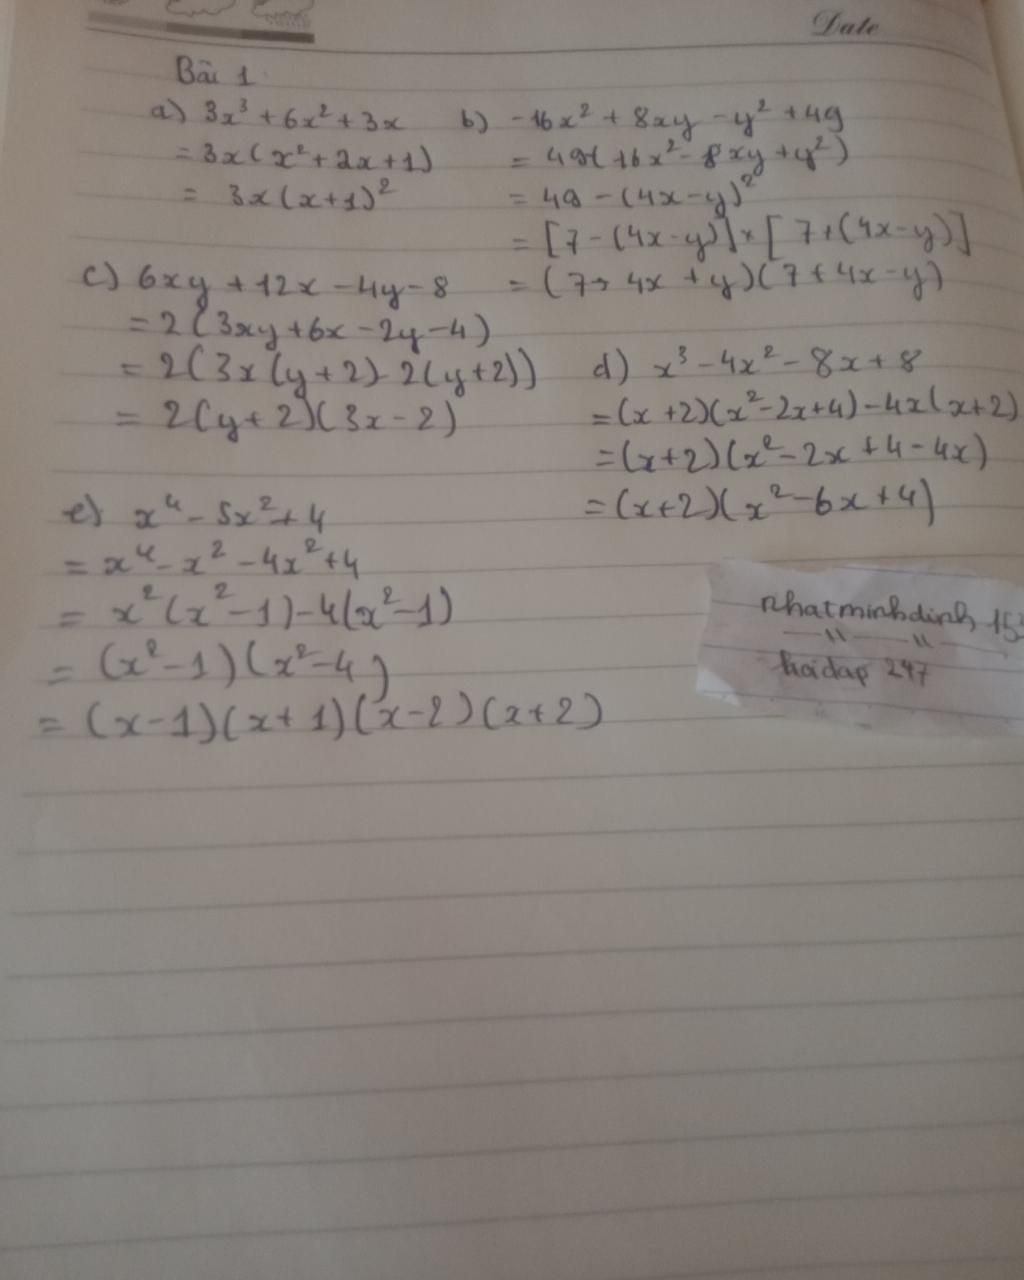 Date
Bài 1
a) 3x³ + 6x² + 3x
= 3x(x² + 2x + 1)
= 3x(x+1)²
b) -16x² + 8xy - y² + 49
= 49-(16x² - 8xy + y²)
= 49 - (4x - y)²
= [7 - (4x - y)] × [7 + (4x - y)]
= (7 - 4x + y)(7 + 4x - y)
c) 6xy + 12x - 4y - 8
= 2(3xy + 6x - 2y - 4)
= 2(3x(y+2) - 2(y+2))
= 2(y+2)(3x - 2)
d) x³ - 4x² - 8x + 8
= (x+2)(x² - 2x + 4) - 4x(x+2)
= (x+2)(x² - 2x + 4 - 4x)
= (x+2)(x² - 6x + 4)
e) x⁴ - 5x² + 4
= x⁴ - x² - 4x² + 4
= x²(x² - 1) - 4(x² - 1)
= (x² - 1)(x² - 4)
= (x-1)(x+1)(x-2)(x+2)
nhatminhdinh 15
—"——"
hoidap 247